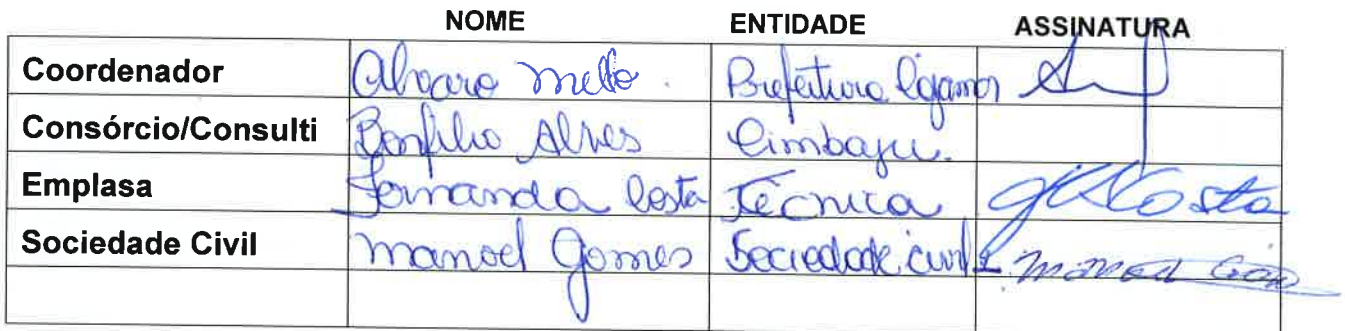 NOME ENTIDADE ASSINATURA
Coordenador Alvaro Mello Prefeitura Cajamar
Consórcio/Consulti Bonfilio Alves Cimbaju.
Emplasa Fernanda Costa Técnica Costa
Sociedade Civil Manoel Gomes Sociedade civil Manoel